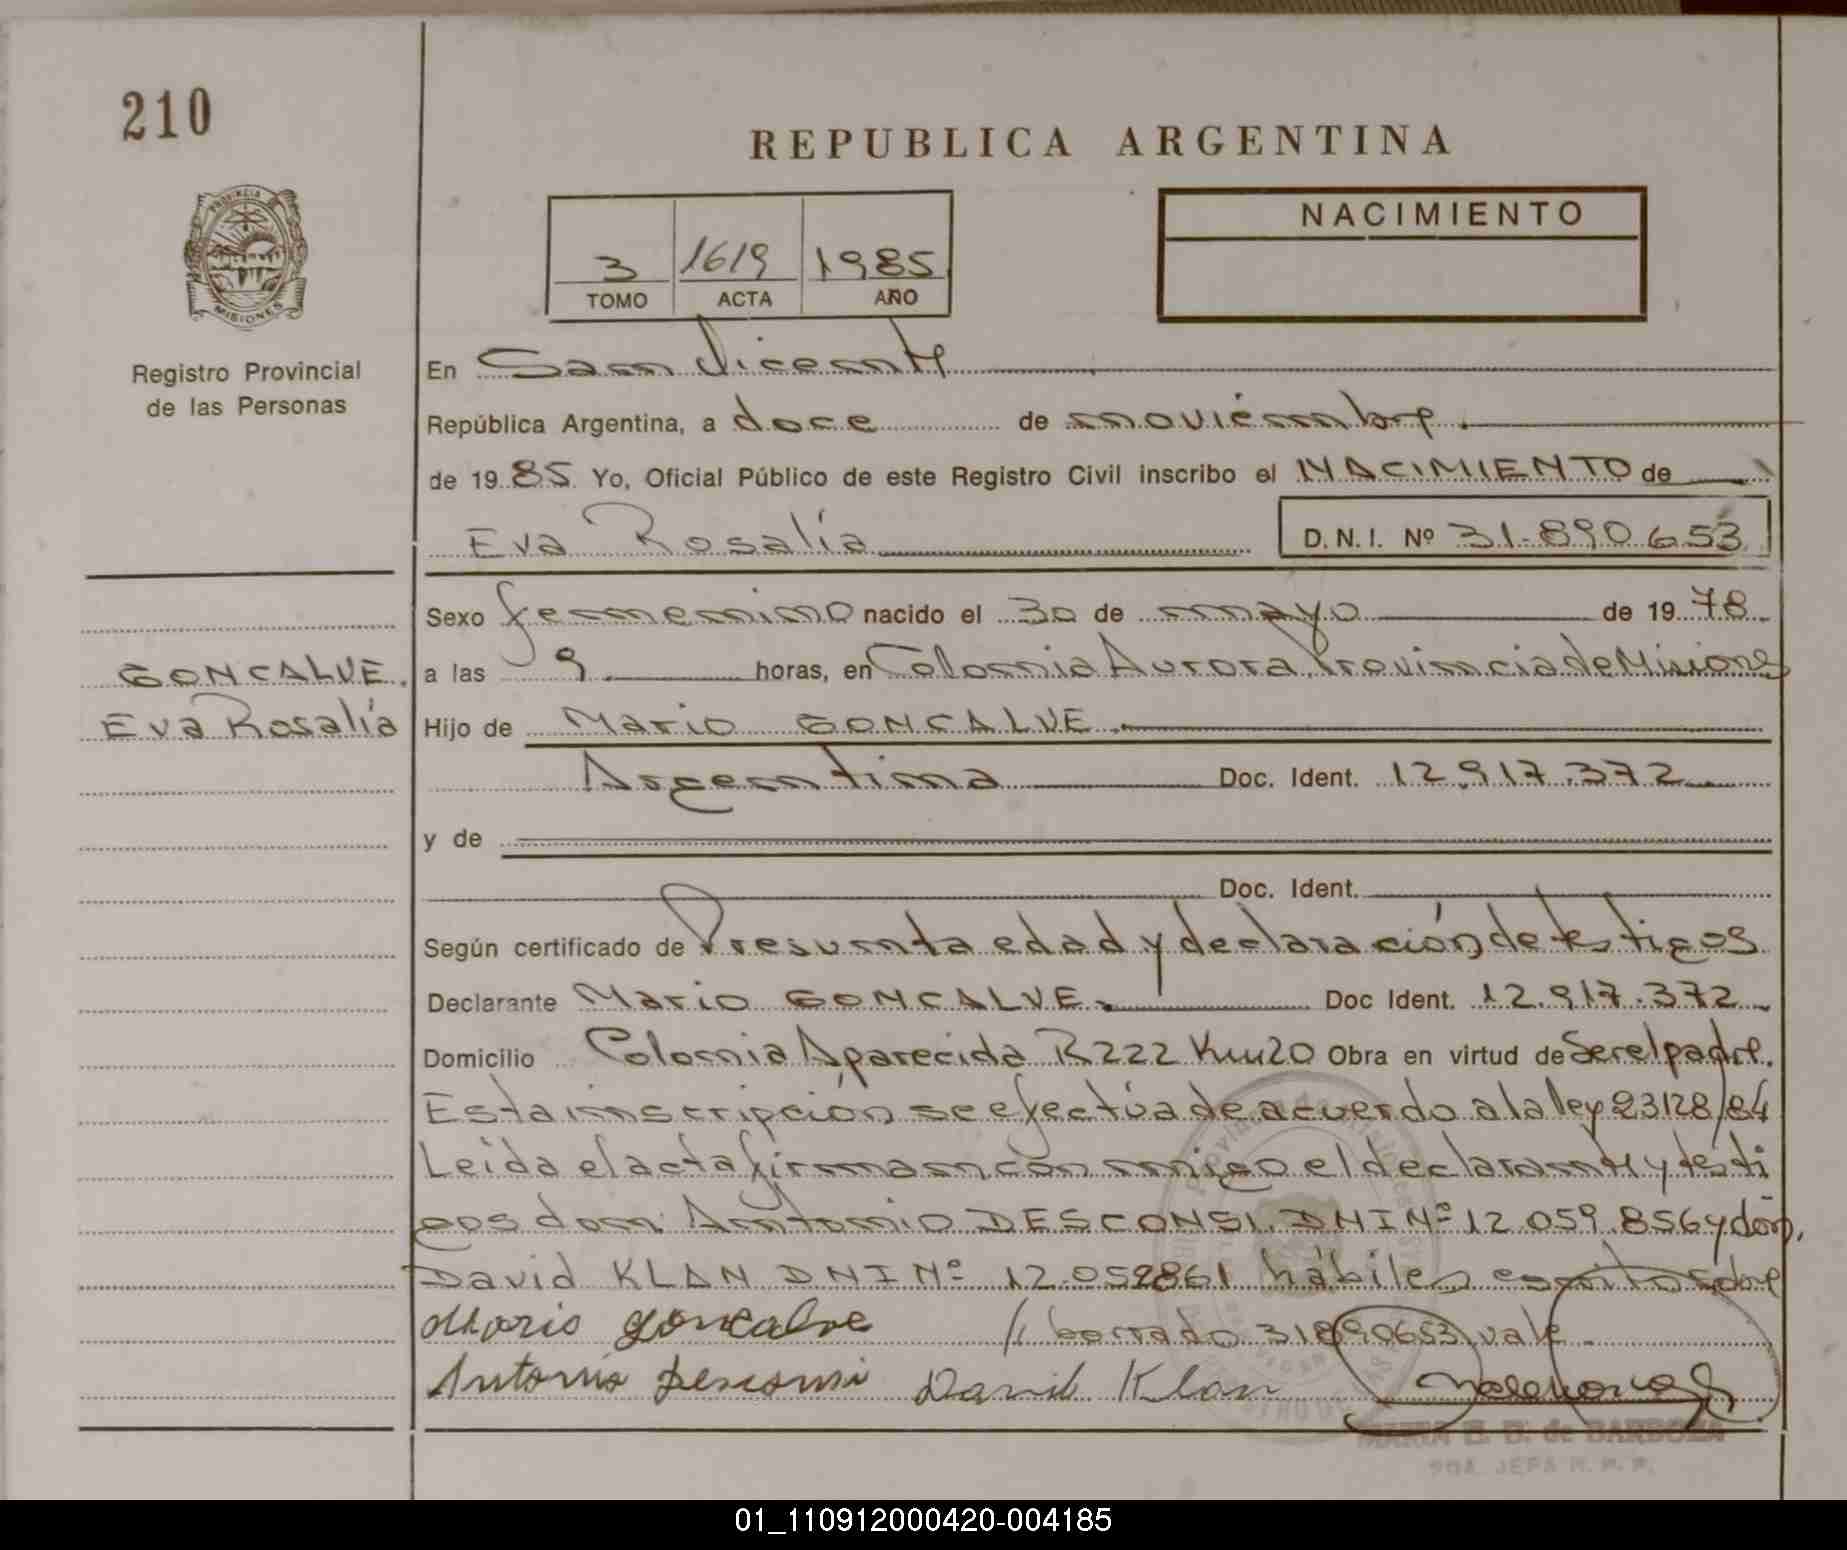 210
REPUBLICA ARGENTINA
PROVINCIA
MISIONES
Registro Provincial
de las Personas
3 1619 1985
TOMO ACTA AÑO
NACIMIENTO
En San Vicente
República Argentina, a doce de noviémbre.
de 19 85 Yo, Oficial Público de este Registro Civil inscribo el NACIMIENTO de
Eva Rosalía D.N.I. Nº 31.890.653
Sexo femenino nacido el 30 de mayo de 19 78
GONCALVE.
Eva Rosalía
a las 9 horas, en Colonia Aurora, Provincia de Misiones
Hijo de Mario GONCALVE.
Argentina Doc. Ident. 12.917.372
y de
Doc. Ident.
Según certificado de Presunta edad y declaración de testigos
Declarante Mario GONCALVE. Doc Ident. 12.917.372
Domicilio Colonia Aparecida R 222 Km 20 Obra en virtud de Ser el padre.
Esta inscripción se efectúa de acuerdo a la ley 23128/84
Leida el acta firman con migo el declarante y testi
gos don: Antonio DESCONSI. DNI Nº 12 059.856 y don,
David KLAN DNI Nº 12.052861 hábiles escrito sobre
Mario goncalve // borrado 31890653 vale.
Antonio Desconsi David Klan
MARIA E. B. de BARBOZA
JEFA R. P. P.
01_110912000420-004185